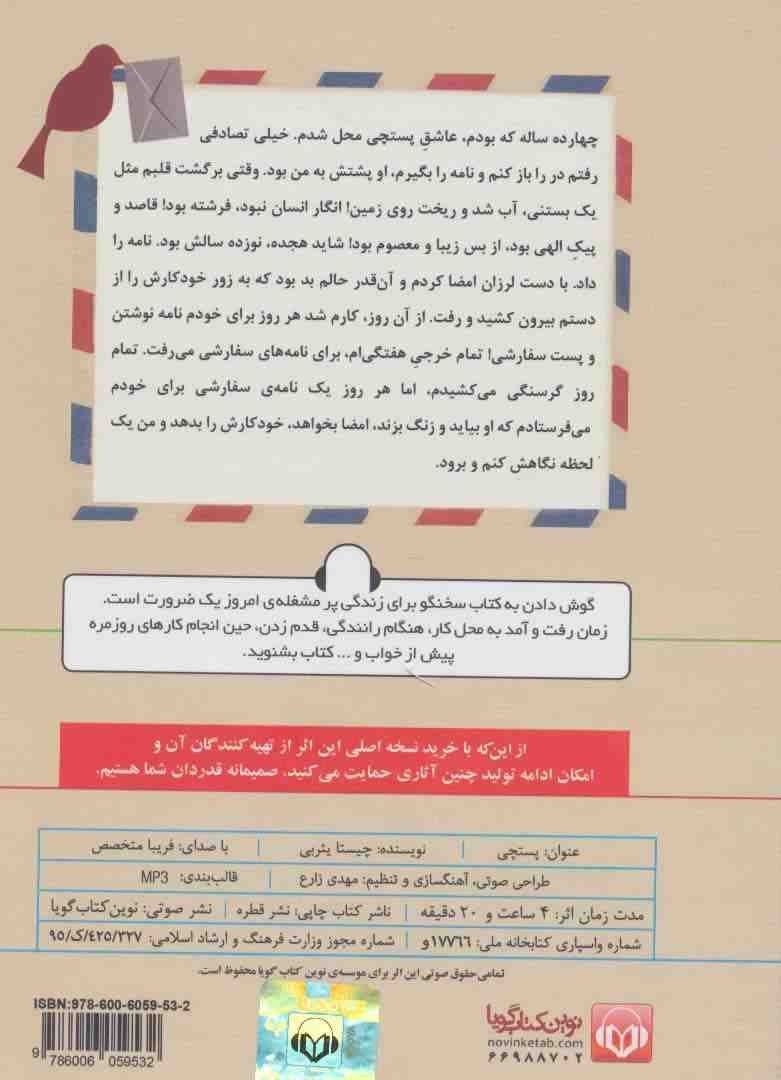 چهارده ساله که بودم، عاشقِ پستچی محل شدم. خیلی تصادفی
رفتم در را باز کنم و نامه را بگیرم، او پشتش به من بود. وقتی برگشت قلبم مثل
یک بستنی، آب شد و ریخت روی زمین! انگار انسان نبود، فرشته بود! قاصد و
پیکِ الهی بود، از بس زیبا و معصوم بود! شاید هجده، نوزده سالش بود. نامه را
داد. با دست لرزان امضا کردم و آن‌قدر حالم بد بود که به زور خودکارش را از
دستم بیرون کشید و رفت. از آن روز، کارم شد هر روز برای خودم نامه نوشتن
و پست سفارشی! تمام خرجیِ هفتگی‌ام، برای نامه‌های سفارشی می‌رفت. تمام
روز گرسنگی می‌کشیدم، اما هر روز یک نامه‌ی سفارشی برای خودم
می‌فرستادم که او بیاید و زنگ بزند، امضا بخواهد، خودکارش را بدهد و من یک
لحظه نگاهش کنم و برود.
گوش دادن به کتاب سخنگو برای زندگی پر مشغله‌ی امروز یک ضرورت است.
زمان رفت و آمد به محل کار، هنگام رانندگی، قدم زدن، حین انجام کارهای روزمره
پیش از خواب و ... کتاب بشنوید.
از این‌که با خرید نسخه اصلی این اثر از تهیه‌کنندگان آن و
امکان ادامه تولید چنین آثاری حمایت می‌کنید، صمیمانه قدردان شما هستیم.
عنوان: پستچی | نویسنده: چیستا یثربی | با صدای: فریبا متخصص
طراحی صوتی، آهنگسازی و تنظیم: مهدی زارع | قالب‌بندی: MP3
مدت زمان اثر: ۴ ساعت و ۲۰ دقیقه | ناشر کتاب چاپی: نشر قطره | نشر صوتی: نوین‌کتاب‌گویا
شماره واسپاری کتابخانه ملی: ۱۷۷۶۶و | شماره مجوز وزارت فرهنگ و ارشاد اسلامی: ۹۵/ک/۴۲۵/۳۲۷
تمامی‌حقوق صوتی این اثر برای موسسه‌ی نوین کتاب گویا محفوظ است.
ISBN:978-600-6059-53-2
9 786006 059532
نوین‌کتاب‌گویا
novinketab.com
۶۶۹۸۸۷۰۲